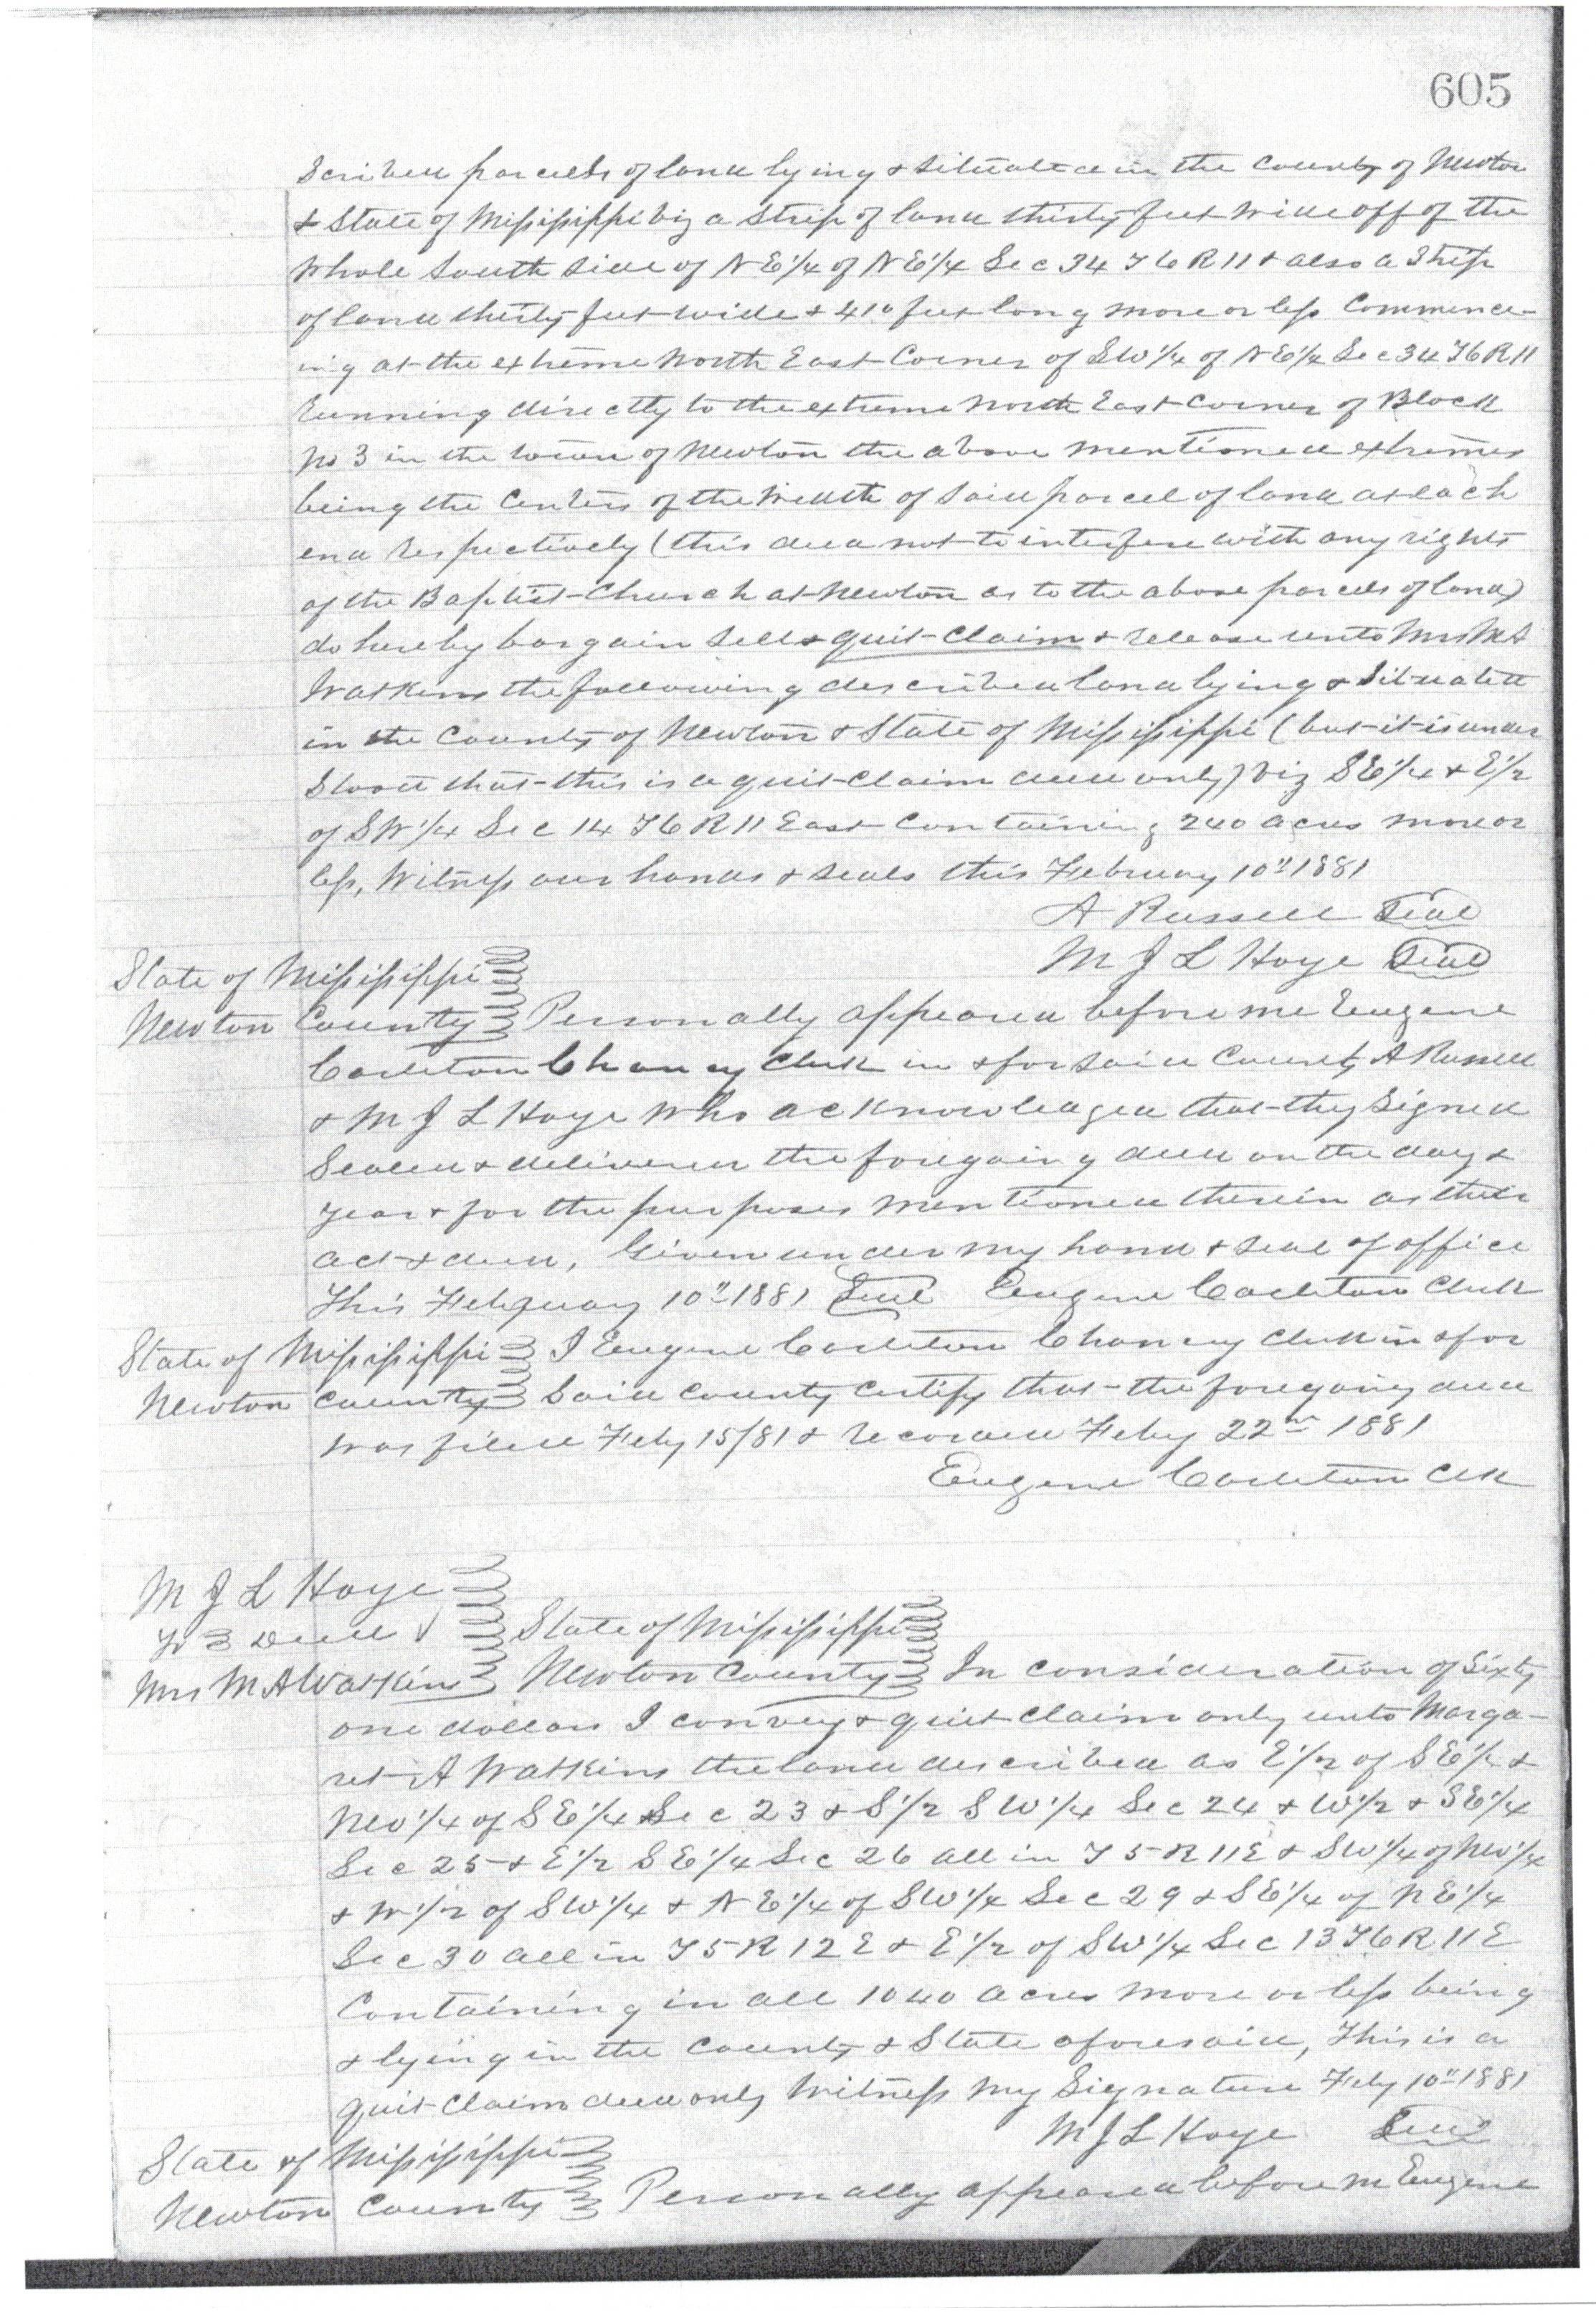 605
scribed parcels of land lying & situated in the County of Newton
& State of Mississippi viz a Strip of land thirty feet wide off of the
whole South side of N E 1/4 of N E 1/4 Sec 34 T 6 R 11 & also a Strip
of land thirty feet wide & 410 feet long more or less Commenc-
ing at the extreme North East Corner of S W 1/4 of N E 1/4 Sec 34 T 6 R 11
Running directly to the extreme North East Corner of Block
No 3 in the town of Newton the above mentioned extremes
being the Centers of the Width of Said parcel of land at each
end respectively (this deed not to interfere with any rights
of the Baptist Church at Newton as to the above parcels of land)
do hereby bargain Sell & quit-claim & release unto Mrs M A
Watkins the following described land lying & Situated
in the County of Newton & State of Mississippi (but it is under
Stood that this is a quit-claim deed only) viz S E 1/4 & E 1/2
of S W 1/4 Sec 14 T 6 R 11 East Containing 240 acres more or
less, Witness our hands & seals this February 10" 1881
A Russell Seal
M J L Hoye Seal
State of Mississippi
Newton County Personally appeared before me Eugene
Carleton Chancy Clerk in & for said County A Russell
& M J L Hoye who acknowledged that they Signed
Sealed & delivered the foregoing deed on the day &
year & for the purposes mentioned therein as their
act & deed, Given under my hand & seal of office
This February 10" 1881 Seal Eugene Carleton Clerk
State of Mississippi I Eugene Carleton Chancy Clerk in & for
Newton County Said County Certify that the foregoing deed
was filed Feby 15/81 & recorded Feby 22nd 1881
Eugene Carleton Clk
M J L Hoye
To Deed State of Mississippi
Mrs M A Watkins Newton County In consideration of Sixty
one dollars I convey & quit claim only unto Marga-
ret A Watkins the land described as E 1/2 of S E 1/4 &
NW 1/4 of S E 1/4 Sec 23 & S 1/2 S W 1/4 Sec 24 & W 1/2 & S E 1/4
Sec 25 & E 1/2 S E 1/4 Sec 26 all in T 5 R 11 E & SW 1/4 of NW 1/4
& W 1/2 of S W 1/4 & N E 1/4 of S W 1/4 Sec 29 & S E 1/4 of N E 1/4
Sec 30 all in T 5 R 12 E & E 1/2 of S W 1/4 Sec 13 T 6 R 11 E
Containing in all 1040 acres more or less being
& lying in the County & State aforesaid, This is a
quit-claim deed only Witness my Signature Feby 10" 1881
M J L Hoye Seal
State of Mississippi
Newton County Personally appeared before m Eugene